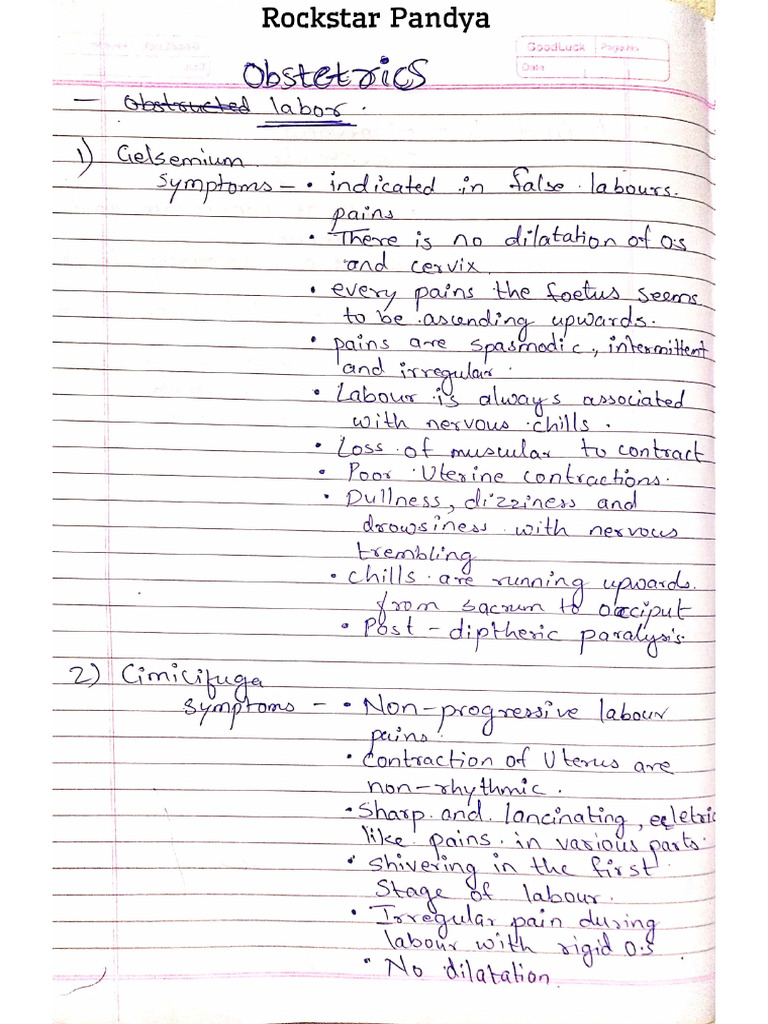 Rockstar Pandya
GoodLuck Page No.
Date
Obstetrics
- Obstructed labor.
1) Gelsemium
symptoms - • indicated in false labours.
pains
• There is no dilatation of O.S
and cervix.
• every pains the foetus seems
to be ascending upwards.
• pains are spasmodic, intermittent
and irregular.
• Labour is always associated
with nervous chills.
• Loss of muscular to contract
• Poor Uterine contractions.
• Dullness, dizziness and
drowsiness with nervous
trembling
• chills are running upwards.
from sacrum to occiput
• Post - diptheric paralysis.
2) Cimicifuga
symptoms - • Non-progressive labour
pains.
• contraction of Uterus are
non-rhythmic.
• Sharp and lancinating, eeletric
like pains in various parts.
• shivering in the first
stage of labour.
• Irregular pain during
labour with rigid O.S
• No dilatation.